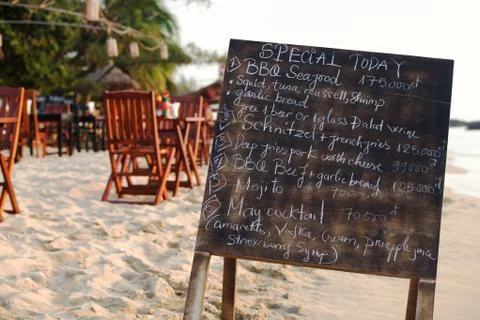 SPECIAL TODAY
1) BBQ Seafood 175.000đ
• Squid, tuna, mussells, shrimp
• garlic bread
Free 1 beer or 1 glass Dalat wine
2) Schnitzel + frenchfries 125.000đ
3) Deep fries pork with cheese 99.000đ
4) BBQ Beef + garlic bread 125.000đ
5) Mojito 70.000đ
6) May cocktail 70.000đ
(amaretto, Vodka, Cream, pineapple juice
Strawberry Syrup)